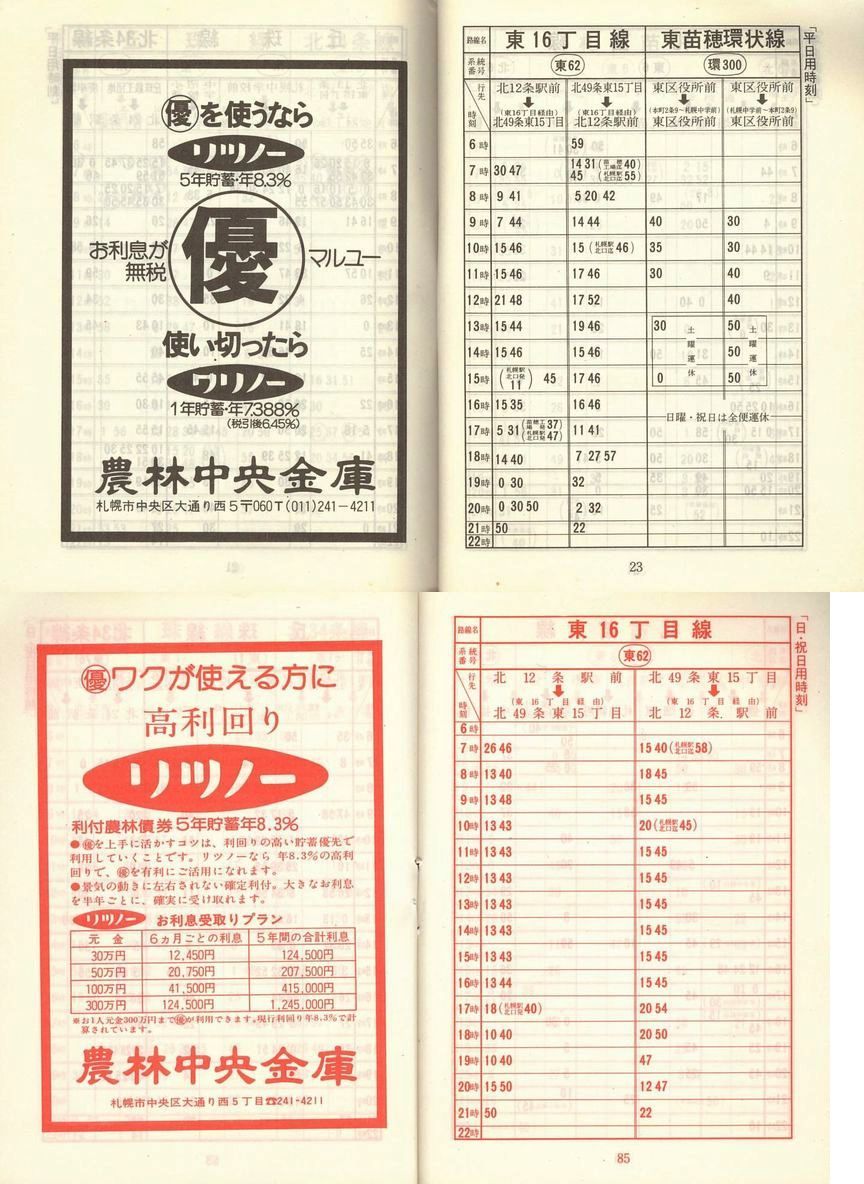 優を使うなら
リツノー
5年貯蓄・年8.3%
お利息が
無税
優
マルユー
使い切ったら
ワリノー
1年貯蓄・年7.388%
(税引後6.45%)
農林中央金庫
札幌市中央区大通り西5〒060T(011)241-4211
「平日用時刻」
路線名 東16丁目線 東苗穂環状線
系統番号 東62 環300
行先 時刻
北12条駅前 (東16丁目経由) 北49条東15丁目
北49条東15丁目 (東16丁目経由) 北12条駅前
東区役所前 (本町2条9~札幌中学前) 東区役所前
東区役所前 (札幌中学前~本町2条9) 東区役所前
6時 59
7時 30 47 14 31(苗穂工場迄40) 45(札幌駅北口迄55)
8時 9 41 5 20 42
9時 7 44 14 44 40 30
10時 15 46 15(札幌駅北口迄46) 35 30
11時 15 46 17 46 30 40
12時 21 48 17 52 40
13時 15 44 19 46 30 50
14時 15 46 15 46 50
15時 (札幌駅北口発11) 45 17 46 0 50
土曜運休 土曜運休
16時 15 35 16 46
17時 5 31(苗穂工場発37)(札幌駅北口発47) 11 41
日曜・祝日は全便運休
18時 14 40 7 27 57
19時 0 30 32
20時 0 30 50 2 32
21時 50 22
22時
23
優ワクが使える方に
高利回り
リツノー
利付農林債券5年貯蓄年8.3%
●優を上手に活かすコツは、利回りの高い貯蓄優先で
利用していくことです。リツノーなら 年8.3%の高利
回りで、優を有利にご活用になれます。
●景気の動きに左右されない確定利付。大きなお利息
を半年ごとに、確実に受け取れます。
リツノー お利息受取りプラン
元金 6カ月ごとの利息 5年間の合計利息
30万円 12,450円 124,500円
50万円 20,750円 207,500円
100万円 41,500円 415,000円
300万円 124,500円 1,245,000円
※お1人元金300万円まで優が利用できます。現行利回り年8.3%で計
算されています。
農林中央金庫
札幌市中央区大通り西5丁目☎241-4211
「日・祝日用時刻」
路線名 東16丁目線
系統番号 東62
行先 時刻
北12条駅前 (東16丁目経由) 北49条東15丁目
北49条東15丁目 (東16丁目経由) 北12条駅前
6時
7時 26 46 15 40(札幌駅北口迄58)
8時 13 40 18 45
9時 13 48 15 45
10時 13 43 20(札幌駅北口迄45)
11時 13 43 15 45
12時 13 43 15 45
13時 13 43 15 45
14時 13 43 15 45
15時 13 43 15 45
16時 13 44 15 45
17時 18(札幌駅北口発40) 20 54
18時 10 40 20 50
19時 10 40 47
20時 15 50 12 47
21時 50 22
22時
85